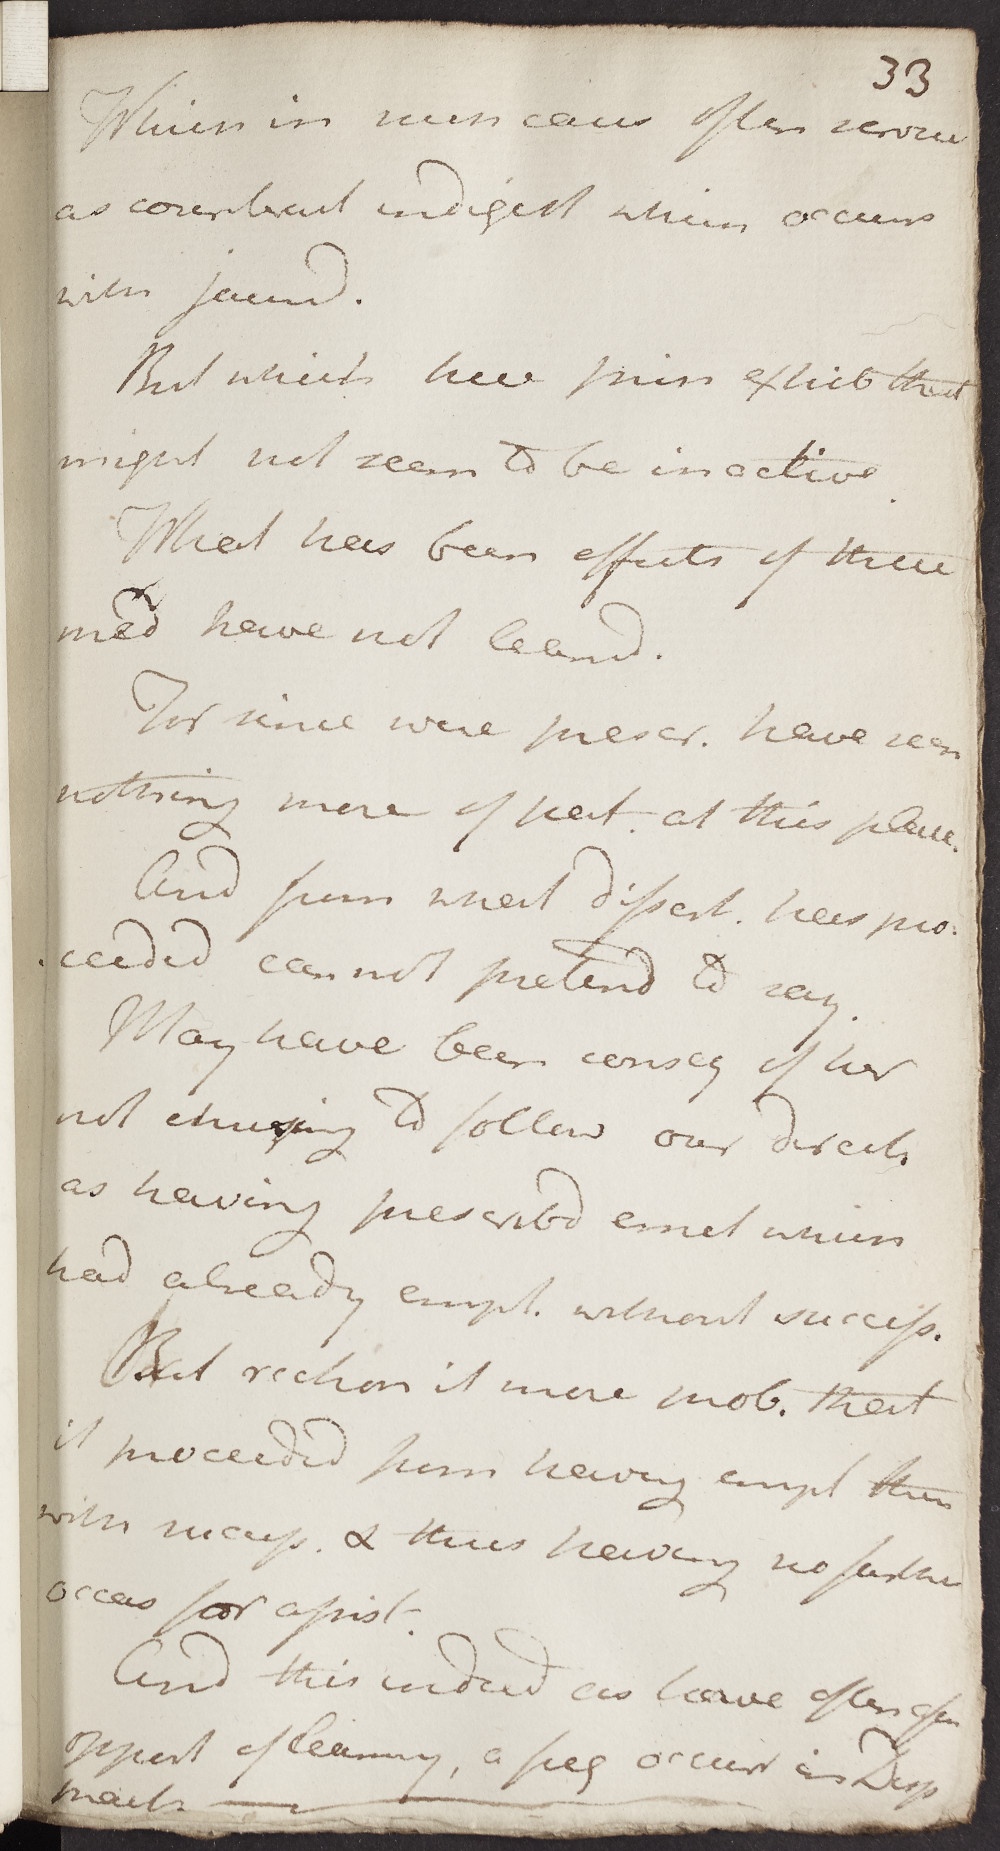 33
Which in such cases often serves
as counteract indigest which occurs
with jaund.
But which here principally exhib that
might not seem to be inactive.
What has been effects of these
med have not learnd.
For since were prescr. have seen
nothing more of pat. at this place.
And from what dissert. has pro-
ceeded cannot pretend to say.
May have been conseq of her
not chusing to follow our direct
as having prescribd emet which
had already empl. without success.
But reckon it more prob. that
it proceeded from having empl them
with success. & thus having no further
occas for assist.
And this indeed as have often
opport of learning, a freq occurr in Disp
pract.